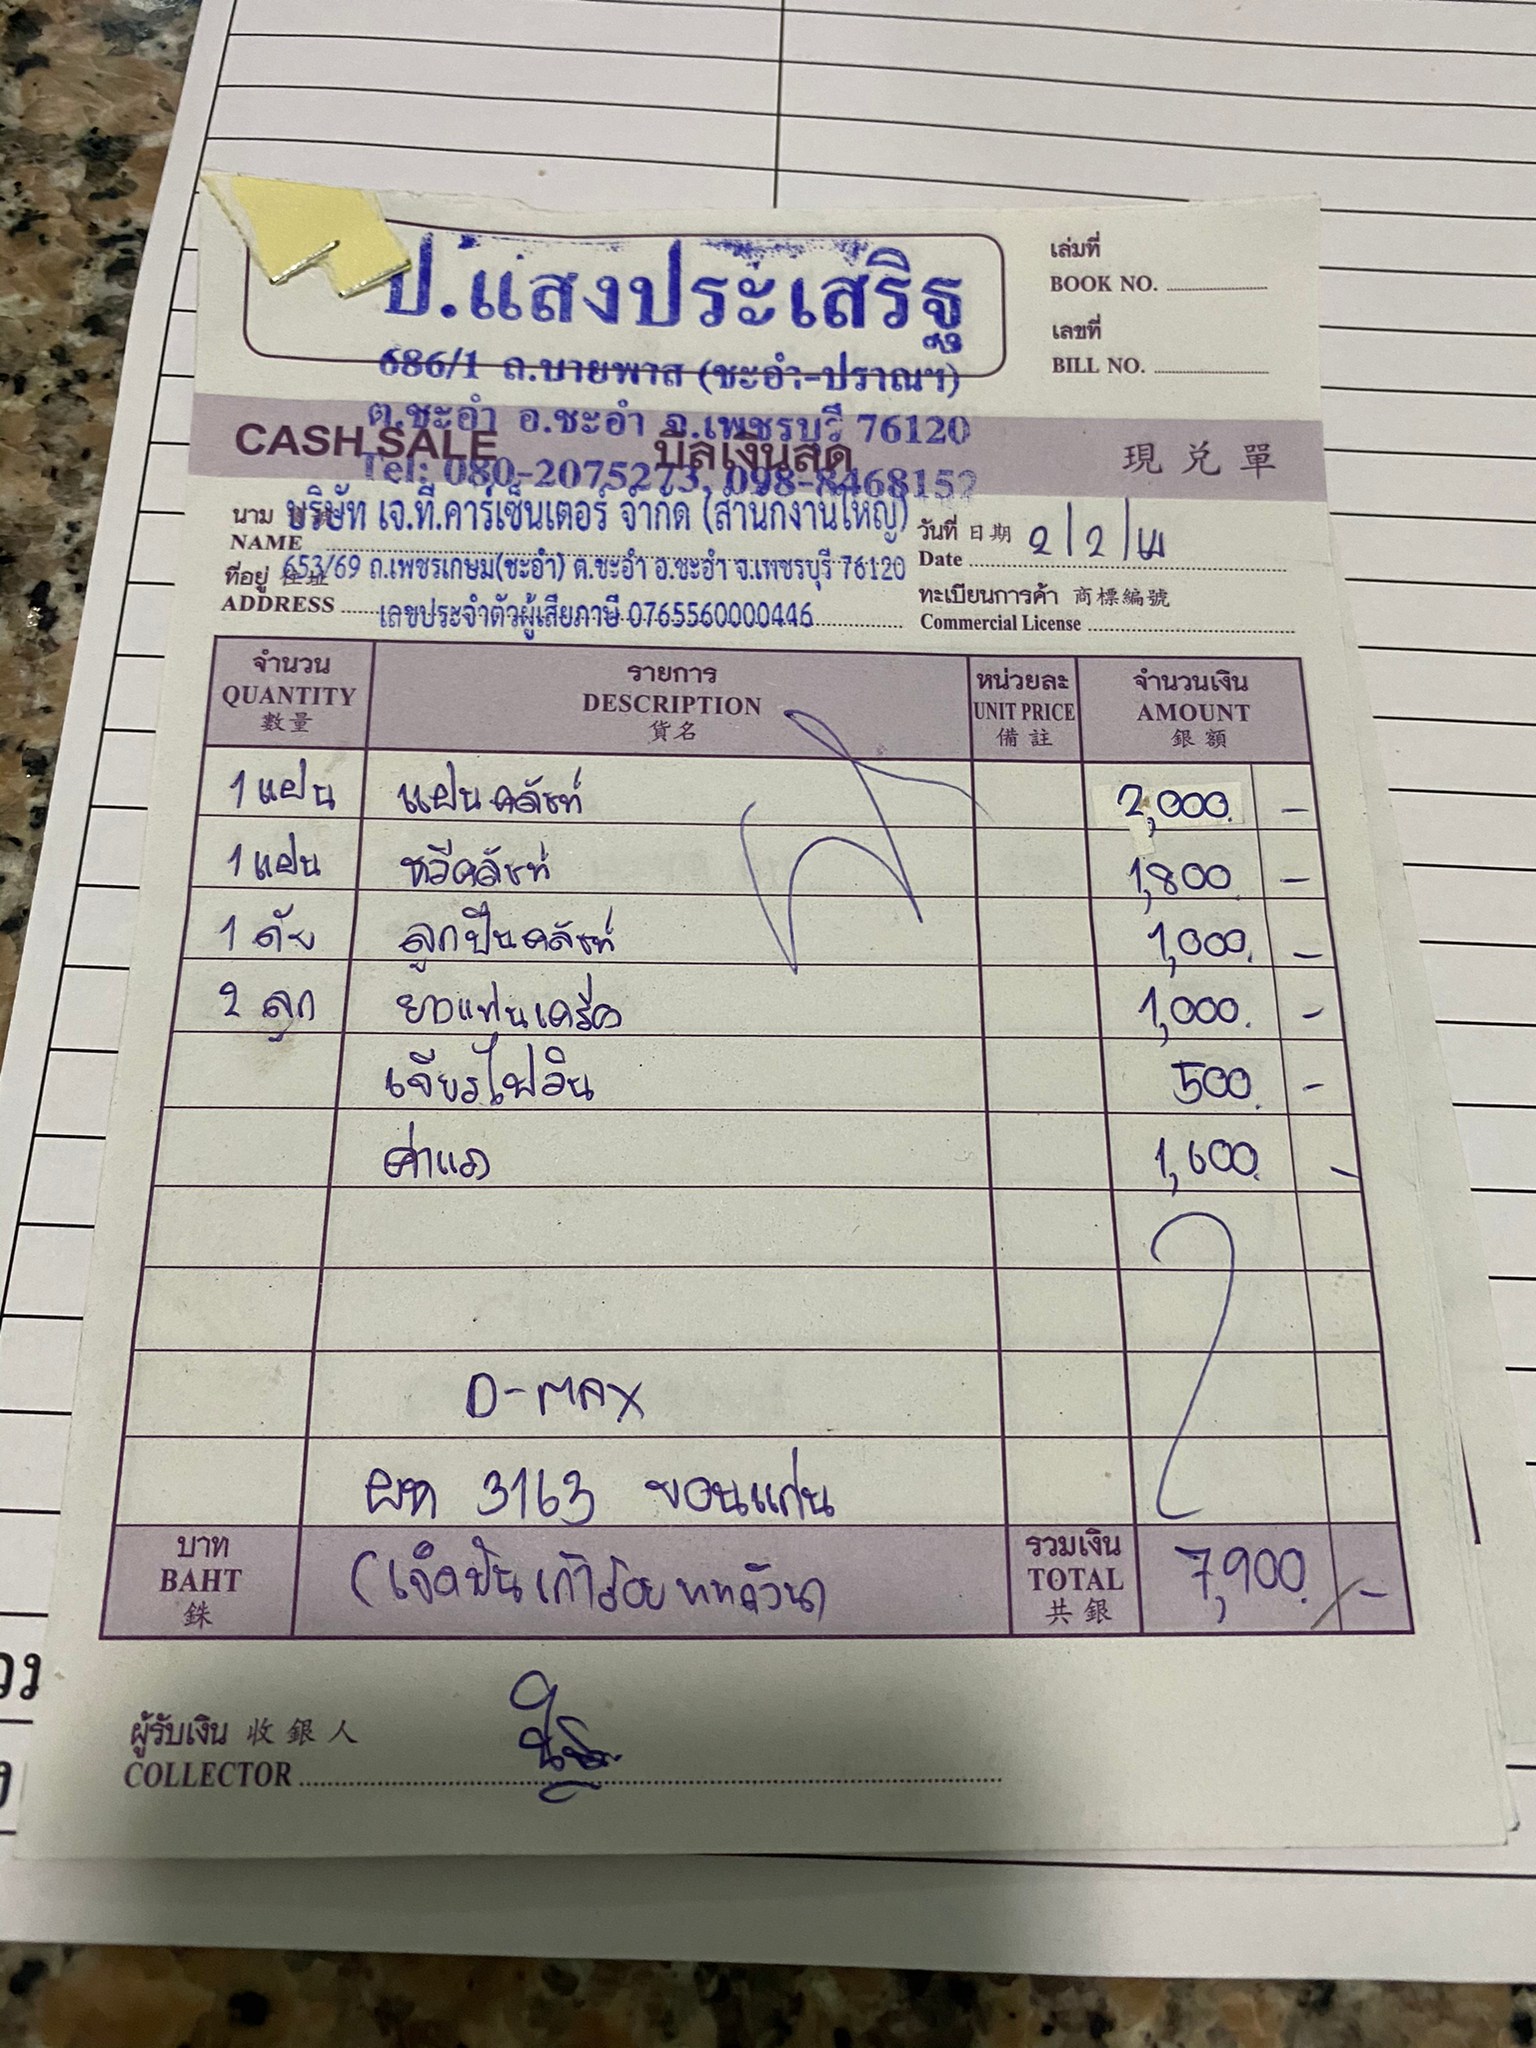 ป.แสงประเสริฐ
686/1 ถ.บายพาส (ชะอำ-ปราณฯ)
ต.ชะอำ อ.ชะอำ จ.เพชรบุรี 76120
Tel: 080-2075273, 098-8468152
เล่มที่
BOOK NO.
เลขที่
BILL NO.
CASH SALE บิลเงินสด 現兌單
นาม บริษัท เจ.ที.คาร์เซ็นเตอร์ จำกัด (สำนักงานใหญ่)
NAME
วันที่ 日期 2/2/
Date
ที่อยู่ 住址 653/69 ถ.เพชรเกษม(ชะอำ) ต.ชะอำ อ.ชะอำ จ.เพชรบุรี 76120
ADDRESS เลขประจำตัวผู้เสียภาษี 0765560000446
ทะเบียนการค้า 商標編號
Commercial License
จำนวน รายการ หน่วยละ จำนวนเงิน
QUANTITY DESCRIPTION UNIT PRICE AMOUNT
數量 貨名 備註 銀額
1 แผ่น แผ่นคลัชท์ 2,000. -
1 แผ่น หวีคลัชท์ 1,800 -
1 ตัว ลูกปืนคลัชท์ 1,000. -
2 ลูก ยางแท่นเครื่อง 1,000. -
เจียรไฟวีน 500. -
ค่าแรง 1,600. -
D-MAX
ผท 3163 ขอนแก่น
บาท (เจ็ดพันเก้าร้อยบาทถ้วน) รวมเงิน 7,900. -
BAHT TOTAL
銖 共銀
ผู้รับเงิน 收銀人
COLLECTOR